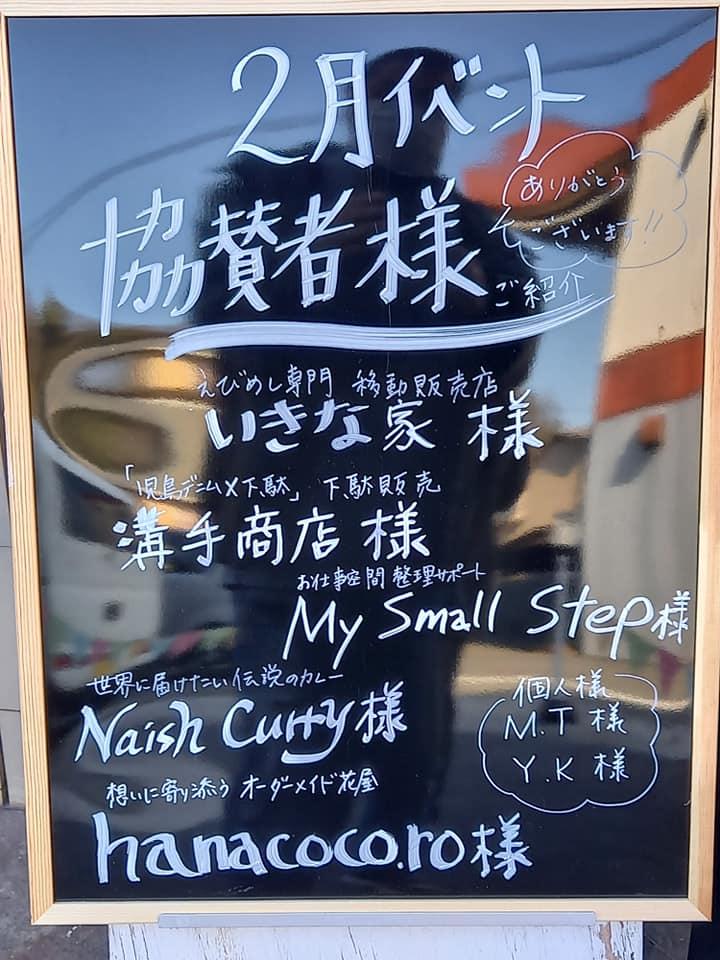 2月イベント
協賛者様
ご紹介
ありがとう
ございます!!
えびめし専門 移動販売店
いきな家 様
「児島デニム×下駄」 下駄販売
溝手商店 様
お仕事空間 整理サポート
My Small Step様
世界に届けたい伝説のカレー
Naish Curry様
個人様
M.T 様
Y.K 様
想いに寄り添う オーダーメイド花屋
hanacoco.ro様